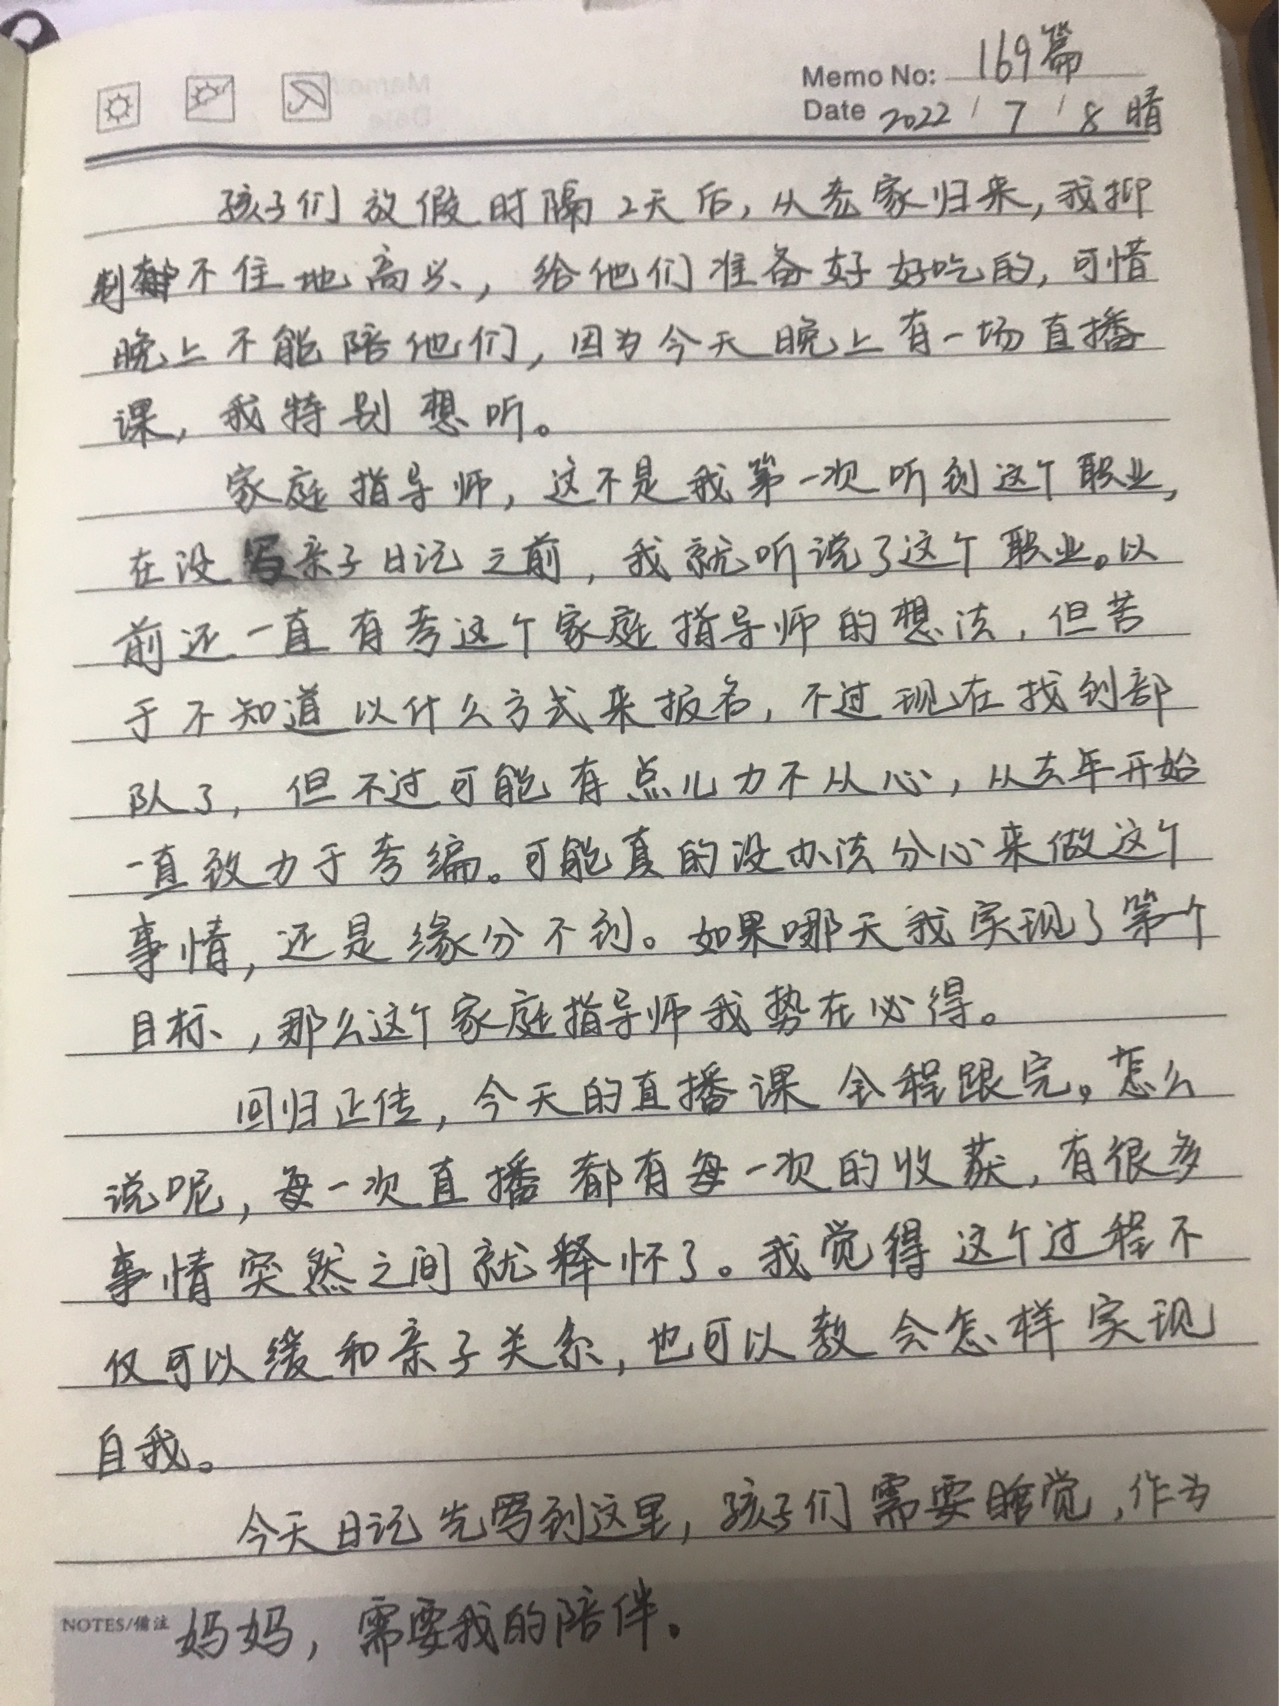 Memo No: 169篇
Date 2022 / 7 / 8 晴
孩子们放假时隔2天后,从老家归来,我抑
制不住地高兴,给他们准备好好吃的,可惜
晚上不能陪他们,因为今天晚上有一场直播
课,我特别想听。
家庭指导师,这不是我第一次听到这个职业,
在没写亲子日记之前,我就听说了这个职业。以
前还一直有考这个家庭指导师的想法,但苦
于不知道以什么方式来报名,不过现在找到部
队了,但不过可能有点儿力不从心,从去年开始
一直致力于考编。可能真的没办法分心来做这个
事情,还是缘分不到。如果哪天我实现了第一个
目标、,那么这个家庭指导师我势在必得。
回归正传,今天的直播课全程跟完。怎么
说呢,每一次直播都有每一次的收获,有很多
事情突然之间就释怀了。我觉得这个过程不
仅可以缓和亲子关系,也可以教会怎样实现
自我。
今天日记先写到这里,孩子们需要睡觉,作为
NOTES/备注 妈妈,需要我的陪伴。